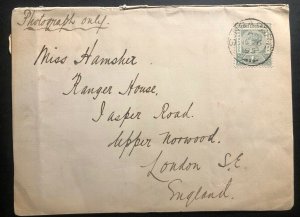 Photographs only.
Miss Hamsher.
Ranger House,
Jasper Road.
Upper Norwood.
London S.E.
England.